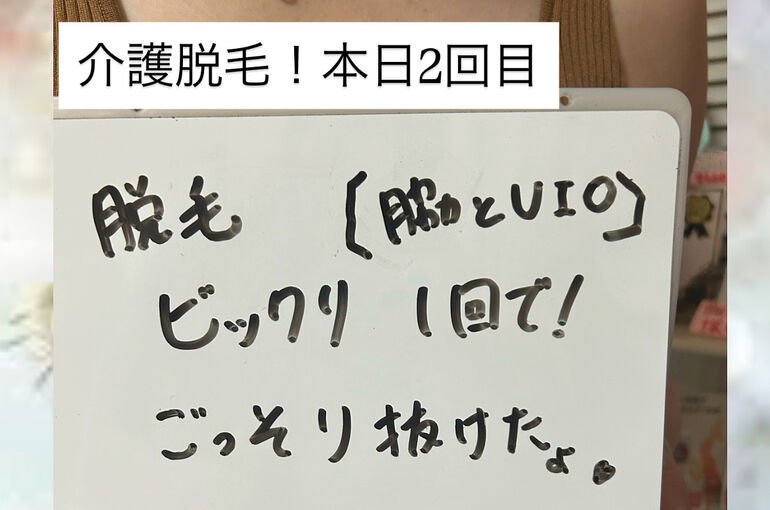 介護脱毛！本日2回目
脱毛 [脇とUIO]
ビックリ 1回で!
ごっそり抜けたよ